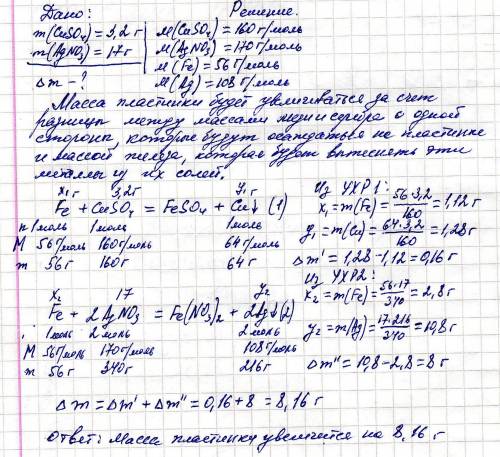 Дано: Решение.
m(CuSO₄) = 3,2 г M(CuSO₄) = 160 г/моль
m(AgNO₃) = 17 г M(AgNO₃) = 170 г/моль
Δm - ? M(Fe) = 56 г/моль
M(Ag) = 108 г/моль
Масса пластинки будет увеличиваться за счет
разницы между массами меди и серебра с одной
стороны, которые будут осаждаться на пластинке
и массой железа, которая будет вытеснять эти
металлы из их солей.
x₁ г 3,2 г y₁ г
Fe + CuSO₄ = FeSO₄ + Cu↓ (1)
n 1 моль 1 моль 1 моль
M 56 г/моль 160 г/моль 64 г/моль
m 56 г 160 г 64 г
Из УХР 1:
x₁ = m(Fe) = 56·3,2/160 = 1,12 г
y₁ = m(Cu) = 64·3,2/160 = 1,28 г
Δm' = 1,28 - 1,12 = 0,16 г
x₂ 17 y₂
Fe + 2AgNO₃ = Fe(NO₃)₂ + 2Ag↓ (2)
1 моль 2 моль 2 моль
M 56 г/моль 170 г/моль 108 г/моль
m 56 г 340 г 216 г
Из УХР 2:
x₂ = m(Fe) = 56·17/340 = 2,8 г
y₂ = m(Ag) = 17·216/340 = 10,8 г
Δm'' = 10,8 - 2,8 = 8 г
Δm = Δm' + Δm'' = 0,16 + 8 = 8,16 г
Ответ: Масса пластинки увеличится на 8,16 г